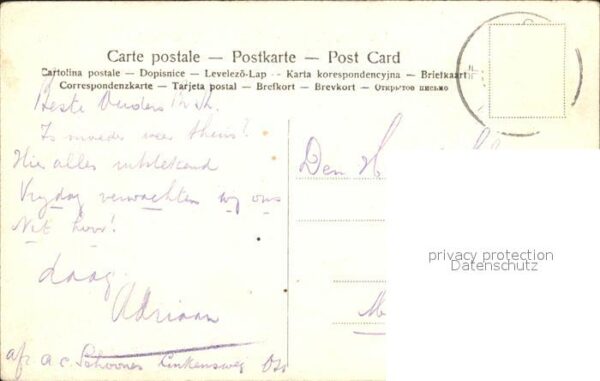 Carte postale — Postkarte — Post Card
Cartolina postale — Dopisnice — Levelező-Lap — Karta korespondencyjna — Briefkaart
Correspondenzkarte — Tarjeta postal — Brefkort — Brevkort — Открытое письмо
Beste Ouders
Is moeder weer thuis?
Hier alles uitstekend
Vrydag verwachten wy ons
Niet hoor!
daag
Adriaan
afz. A C. Schoones
Den H
privacy protection
Datenschutz